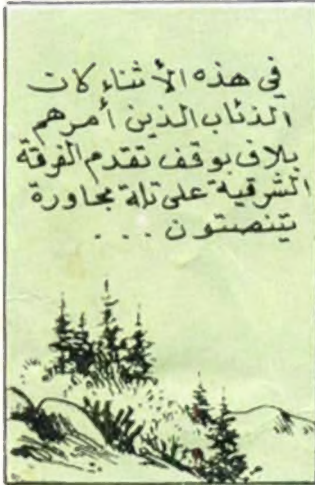 في هذه الأثناء كات
الذئاب الذين أمرهم
بلاف بوقف تقدم الفرقة
الشرقية على تلة مجاورة
يتنصتون ...